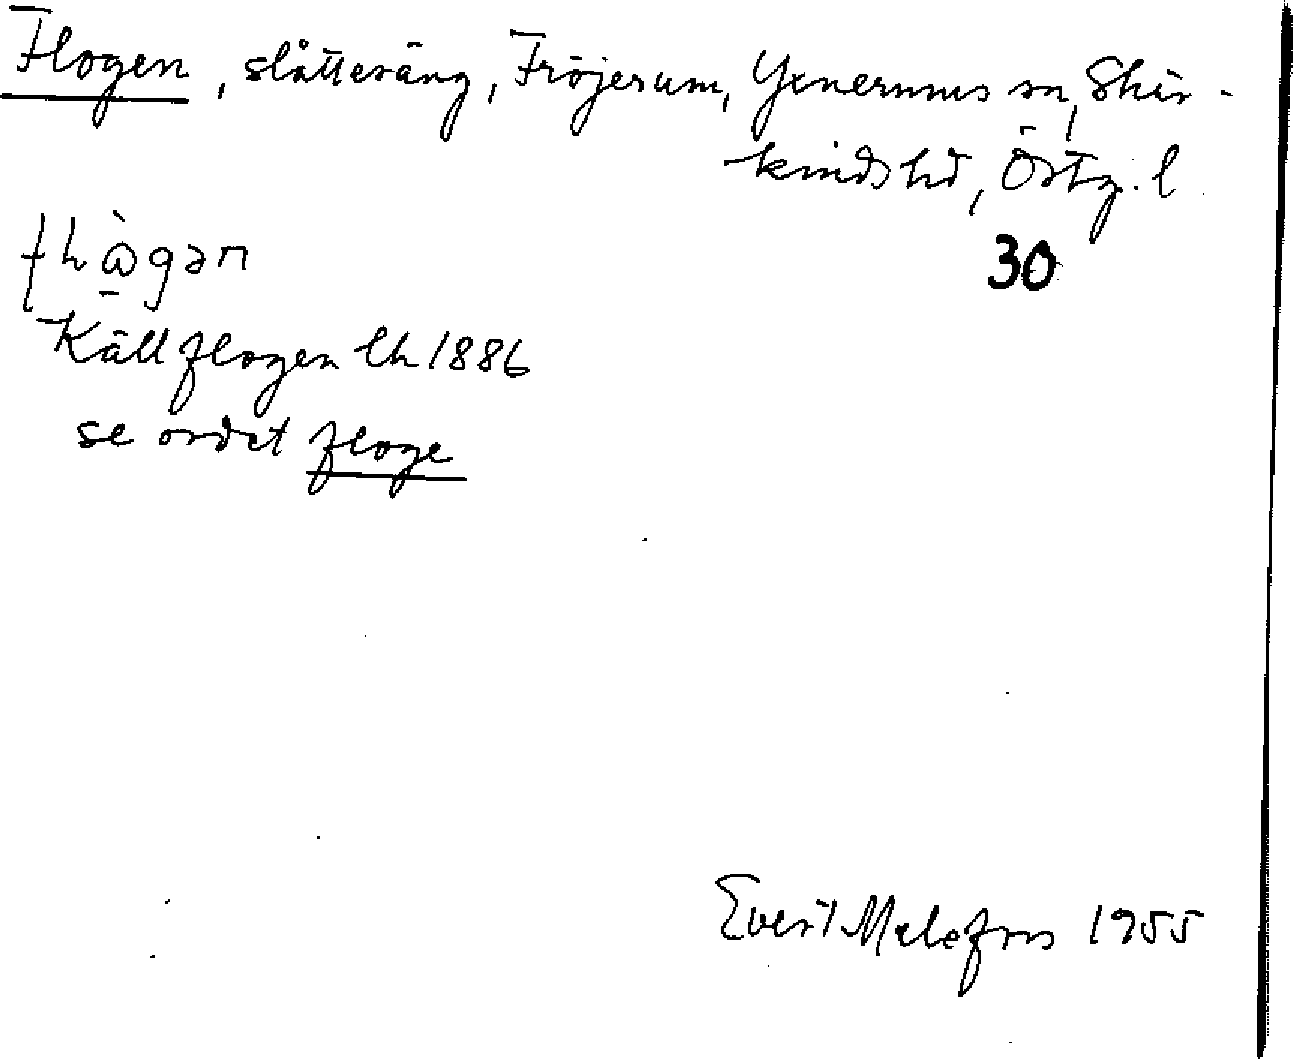 Flogen, slåtteräng, Fröjerum, Yxnerums sn, Skär-
kinds hd, Östg. l
30
Källflogen lh 1886
se ordet floge
Evert Melefors 1955